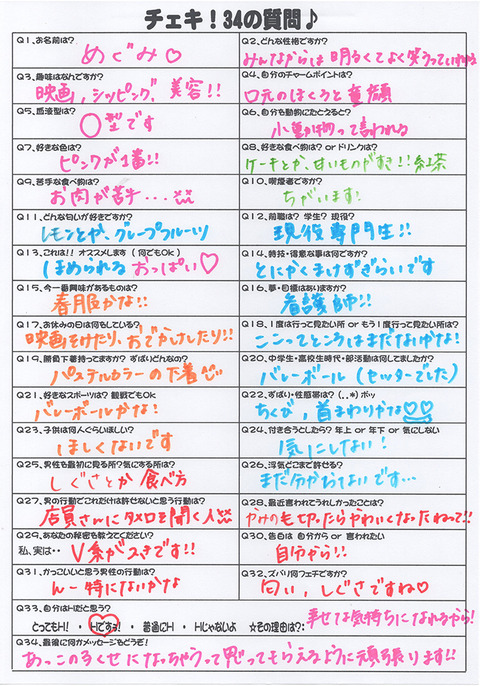 チェキ！34の質問♪
Q1、お名前は？
めぐみ♡
Q2、どんな性格ですか？
みんなからは明るくてよく笑うっていわれる
Q3、趣味はなんですか？
映画,ショッピング,美容!!
Q4、自分のチャームポイントは？
口元のほくろと童顔
Q5、血液型は？
O型です
Q6、自分を動物にたとえると？
小動物って言われる
Q7、好きな色は？
ピンクが1番!!
Q8、好きな食べ物は？ or ドリンクは？
ケーキとか、甘いものがすき!!紅茶
Q9、苦手な食べ物は？
お肉が苦手...
Q10、喫煙者ですか？
ちがいます!
Q11、どんな匂いが好きですか？
レモンとか、グレープフルーツ
Q12、前職は？ 学生？ 現役？
現役専門生!!
Q13、これは！！ オススメします（何でもOk）
ほめられるおっぱい♡
Q14、特技・得意な事は何ですか？
とにかくまけずぎらいです
Q15、今一番興味があるものは？
春服かな!!
Q16、夢・目標はありますか？
看護師!!
Q17、お休みの日は何をしている？
映画みたり、おでかけしたり!!
Q18、1度は行って見たい所 or もう1度行って見たい所は？
ここってところはまだないかな!
Q19、勝負下着持ってますか？ ずばりどんなの？
パステルカラーの下着
Q20、中学生・高校生時代・部活動は何してましたか？
バレーボール(セッターでした)
Q21、好きなスポーツは？ 観戦でもOk
バレーボールかな!
Q22、ずばい・性感帯は？（．．*）ポッ
ちくび,首まわりかな♡♡
Q23、子供は何人ぐらいほしい？
ほしくないです
Q24、付き合うとしたら？ 年上 or 年下 or 気にしない
気にしない!
Q25、男性を最初に見る所？気にする所は？
しぐさとか食べ方
Q26、浮気どこまで許せる？
まだ分かわないです...
Q27、男の行動でこれだけは許せないと思う行動は？
店員さんにタメ口を聞く人
Q28、最近言われてうれしかったことは？
かみのも切ったらかわいくなったねって!!
Q29、あなたの秘密を教えてください？
私、実は・・V系がスきです!!
Q30、告白は 自分から or 言われたい
自分から!!
Q31、かっこいいと思う男性の行動は？
んー特にないかな
Q32、ズバリ何フェチですか？
匂い,しぐさですね♡
Q33、自分はHだと思う？
とってもH！ ・ Hですぅ！ ・ 普通にH ・ Hじゃないよ ☆その理由は？：幸せな気持ちになれるから!
Q34、最後に何かメッセージをどうぞ！
あっこの子くせになっちゃうって思ってもらえるように頑張ります!!